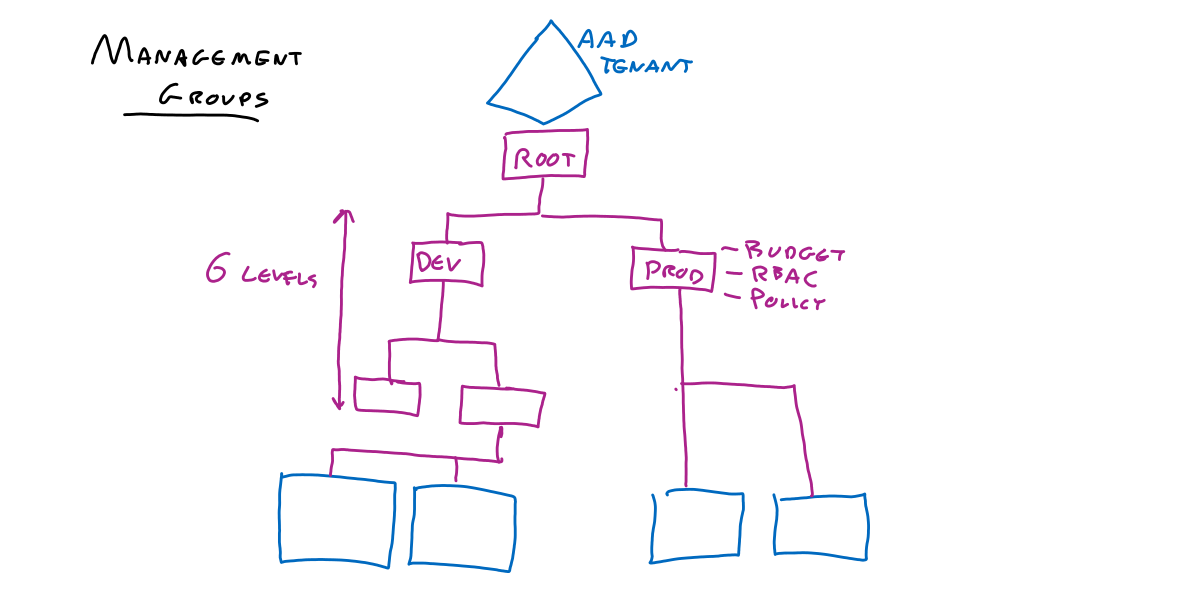 MANAGEMENT
GROUPS
AAD
TENANT
ROOT
6 LEVELS
DEV
PROD
- BUDGET
- RBAC
- POLICY